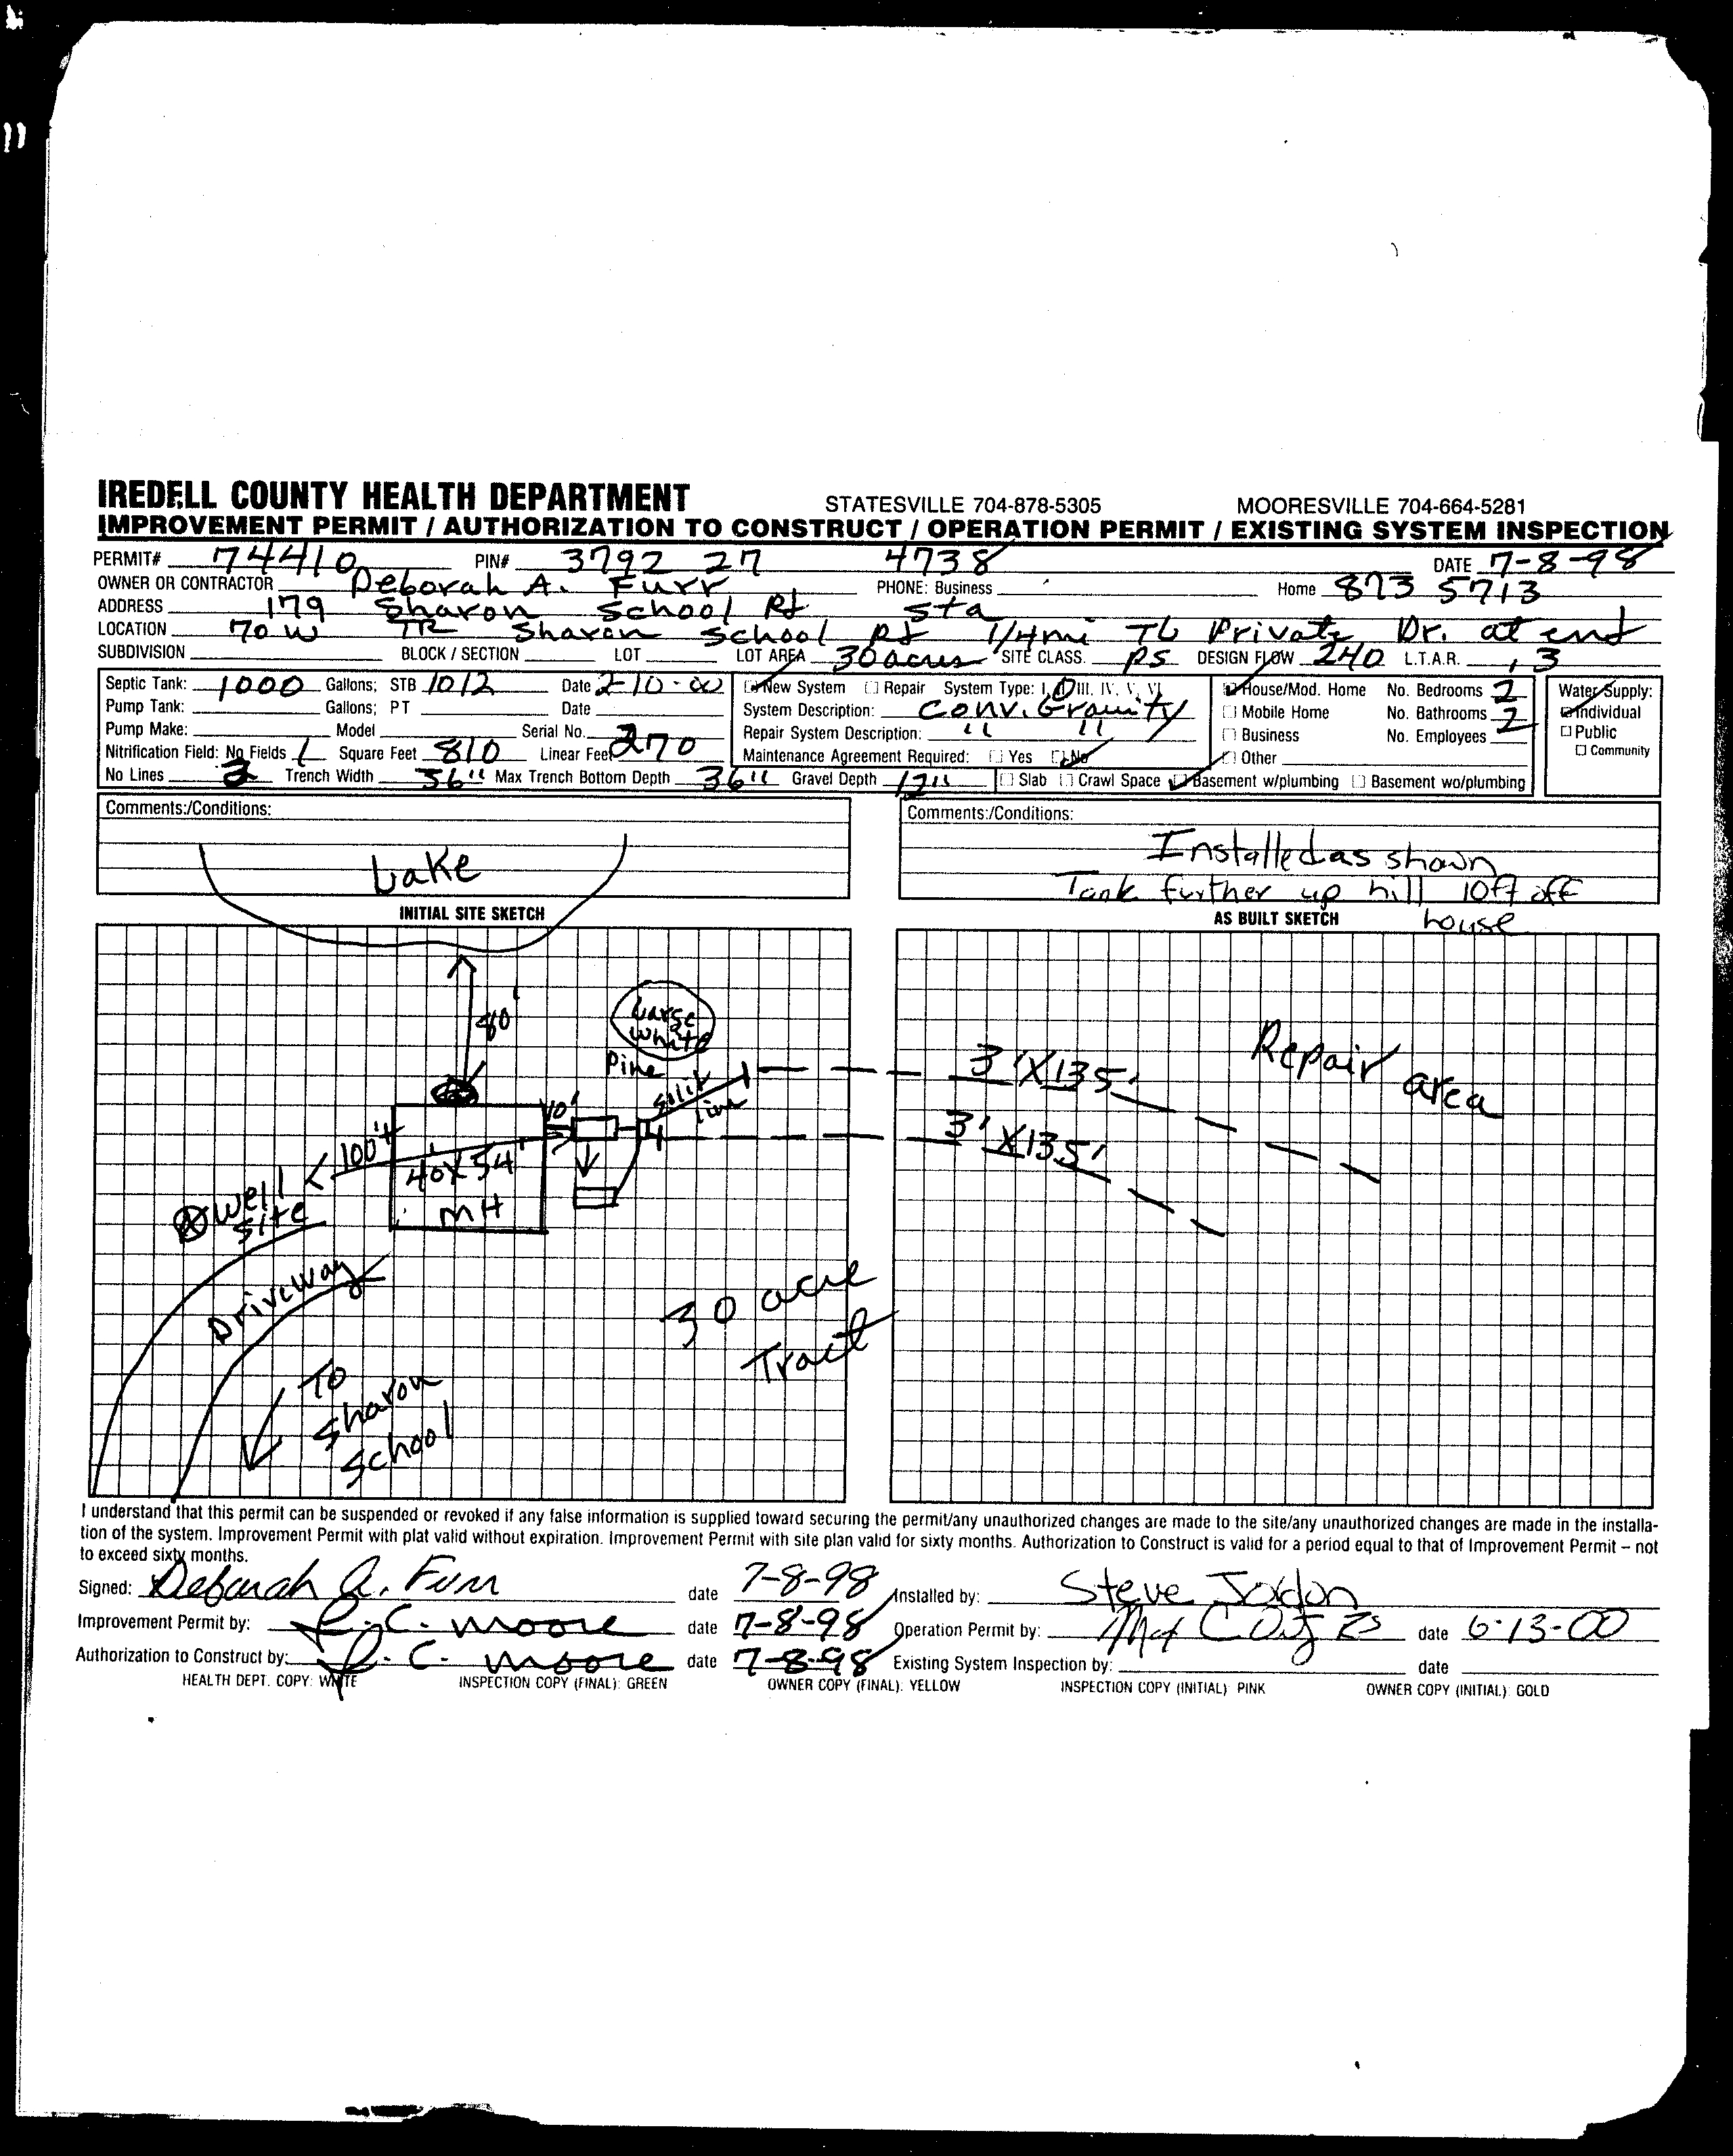 IREDELL COUNTY HEALTH DEPARTMENT STATESVILLE 704-878-5305 MOORESVILLE 704-664-5281
IMPROVEMENT PERMIT / AUTHORIZATION TO CONSTRUCT / OPERATION PERMIT / EXISTING SYSTEM INSPECTION
PERMIT# 74410 PIN# 3792 27 4738 DATE 7-8-98
OWNER OR CONTRACTOR Deborah A. Furr PHONE: Business Home 873 5713
ADDRESS 179 Sharon School Rd Sta
LOCATION 70 W TR Sharon School Rd 1/4 mi TL Private Dr. at end
SUBDIVISION BLOCK / SECTION LOT LOT AREA 30 acres SITE CLASS. PS DESIGN FLOW 240 L.T.A.R. .3
Septic Tank: 1000 Gallons; STB 1012 Date 2-10-00 New System Repair System Type: I, II, III, IV, V, VI House/Mod. Home No. Bedrooms 2 Water Supply:
Pump Tank: Gallons; PT Date System Description: Conv. Gravity Mobile Home No. Bathrooms 2 Individual
Pump Make: Model Serial No. Repair System Description: " " Business No. Employees Public
Nitrification Field: No Fields 1 Square Feet 810 Linear Feet 270 Maintenance Agreement Required: Yes No Other Community
No Lines 2 Trench Width 36" Max Trench Bottom Depth 36" Gravel Depth 12" Slab Crawl Space Basement w/plumbing Basement wo/plumbing
Comments:/Conditions: Comments:/Conditions:
Lake
Installed as shown
Tank further up hill 10ft off
house
INITIAL SITE SKETCH AS BUILT SKETCH
80'
Large
White
Pine
split
line
10'
100'+
40 X 54'
MH
Well
site
Driveway
To
Sharon
School
30 acre
Tract
3' X 135'
3' X 135'
Repair area
I understand that this permit can be suspended or revoked if any false information is supplied toward securing the permit/any unauthorized changes are made to the site/any unauthorized changes are made in the installa-
tion of the system. Improvement Permit with plat valid without expiration. Improvement Permit with site plan valid for sixty months. Authorization to Construct is valid for a period equal to that of Improvement Permit – not
to exceed sixty months.
Signed: Deborah A. Furr date 7-8-98 Installed by: Steve
Improvement Permit by: C. Moore date 7-8-98 Operation Permit by: date 6-13-00
Authorization to Construct by: C. Moore date 7-8-98 Existing System Inspection by: date
HEALTH DEPT. COPY: WHITE INSPECTION COPY (FINAL): GREEN OWNER COPY (FINAL): YELLOW INSPECTION COPY (INITIAL) PINK OWNER COPY (INITIAL) GOLD